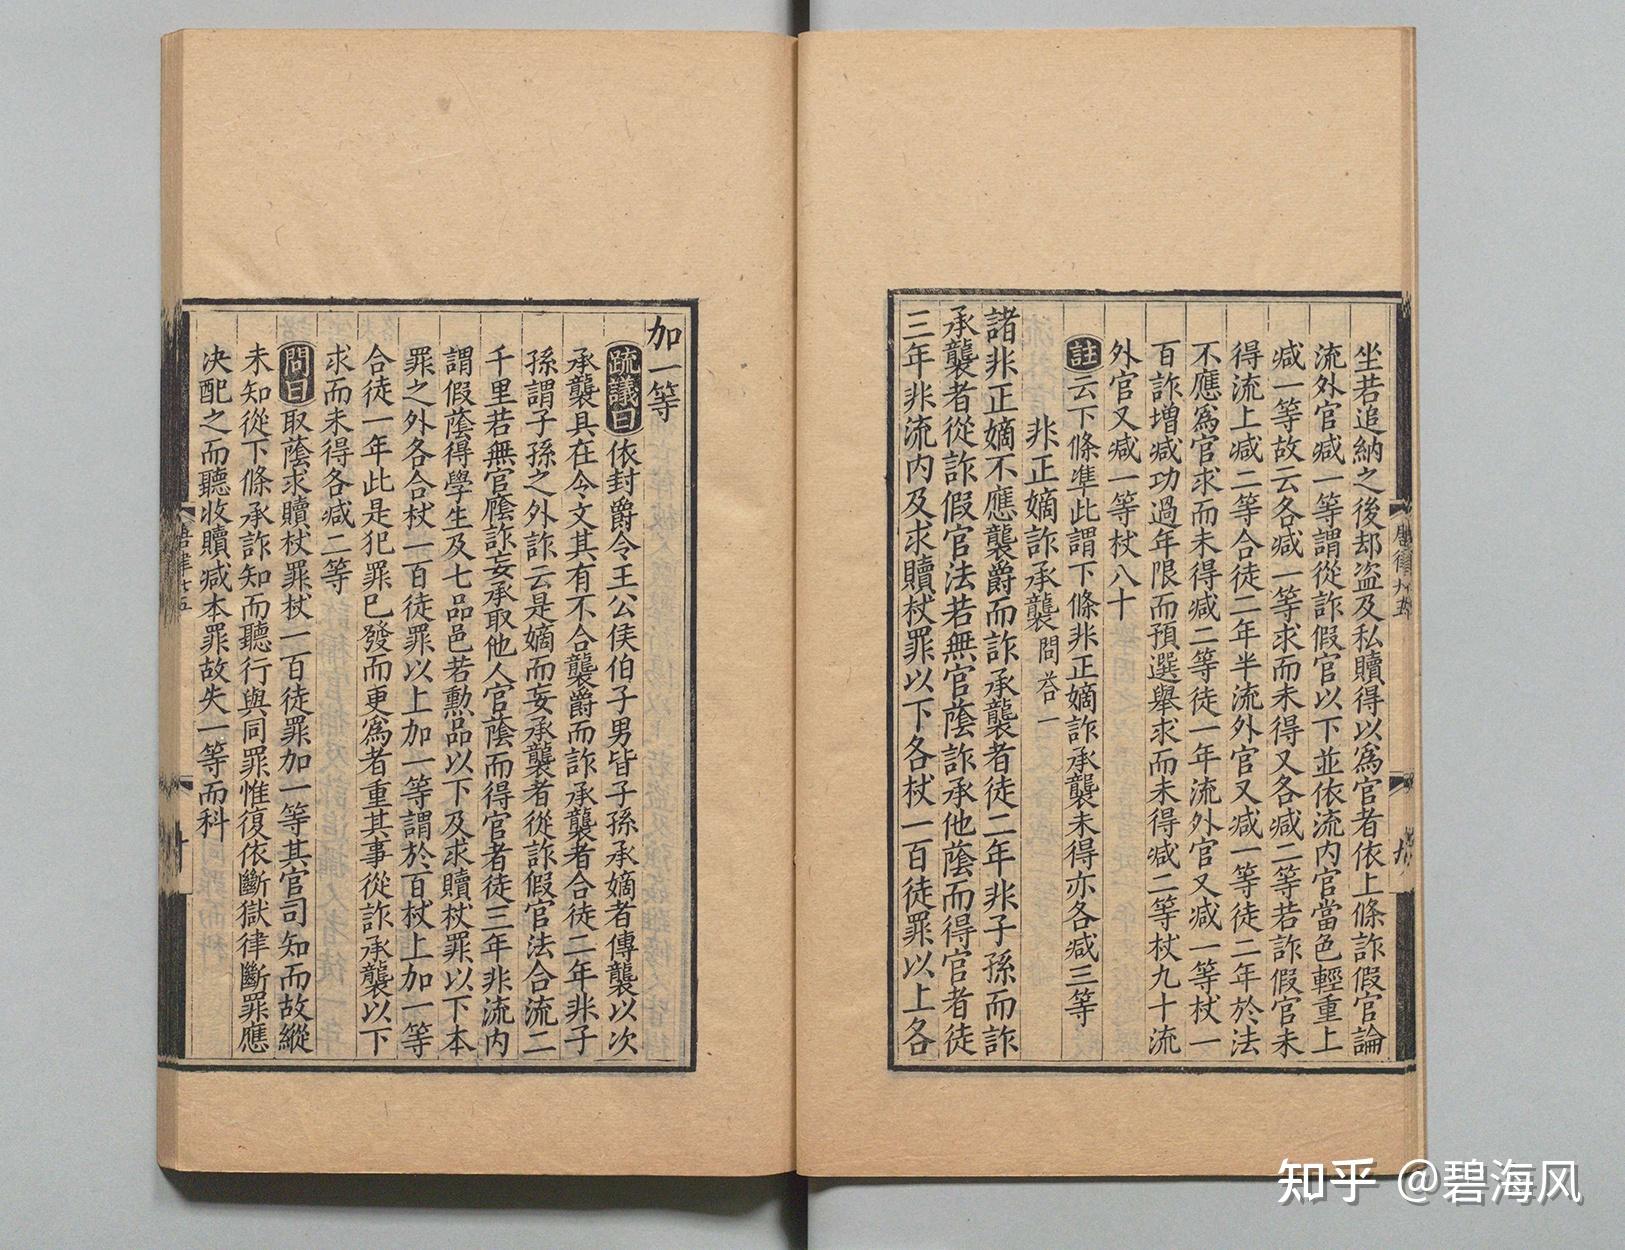 坐若追納之後却盗及私贖得以爲官者依上條詐假官論
流外官减一等謂從詐假官以下並依流内官當色輕重上
减一等故云各减一等求而未得又各减二等若詐假官未
得流上减二等合徒二年半流外官又减一等徒二年於法
不應爲官求而未得减二等徒一年流外官又减一等杖一
百詐增减功過年限而預選舉求而未得减二等杖九十流
外官又减一等杖八十
註云下條準此謂下條非正嫡詐承襲未得亦各减三等
非正嫡詐承襲 問荅一
諸非正嫡不應襲爵而詐承襲者徒二年非子孫而詐
承襲者從詐假官法若無官蔭詐承他蔭而得官者徒
三年非流内及求贖杖罪以下各杖一百徒罪以上各
唐律廿五
九
加一等
疏議曰依封爵令王公侯伯子男皆子孫承嫡者傳襲以次
承襲具在令文其有不合襲爵而詐承襲者合徒二年非子
孫謂子孫之外詐云是嫡而妄承襲者從詐假官法合流二
千里若無官廕詐妄承取他人官蔭而得官者徒三年非流内
謂假蔭得學生及七品邑若勲品以下及求贖杖罪以下本
罪之外各合杖一百徒罪以上加一等謂於百杖上加一等
合徒一年此是犯罪已發而更爲者重其事從詐承襲以下
求而未得各减二等
問曰取蔭求贖杖罪杖一百徒罪加一等其官司知而故縱
未知從下條承詐知而聽行與同罪惟復依斷獄律斷罪應
决配之而聽收贖减本罪故失一等而科
唐律廿五
十
知乎 @碧海风